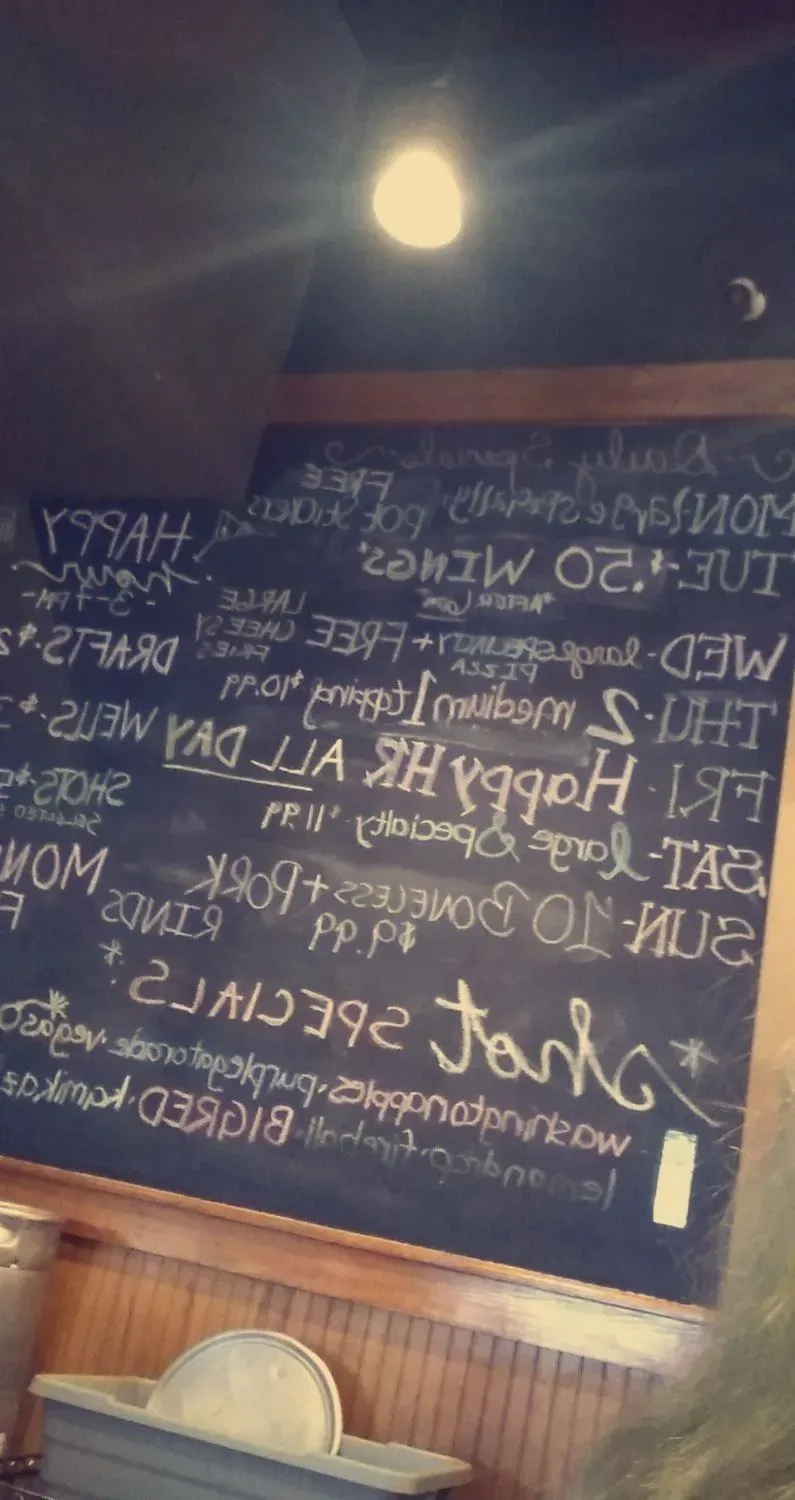 Daily Specials
MON· large specialty FREE pot stickers
TUE- $.50 WINGS
*AFTER
WED- large SPECIALTY PIZZA + FREE LARGE CHEESY FRIES
THU· 2 medium 1 topping $10.99
FRI· Happy HR ALL DAY
SAT- large Specialty· $11.99
SUN- 10 BONELESS + PORK RINDS
$9.99
*shot SPECIALS*
washingtonapples· purplegatorade· vegas
lemondrop· fireball· BIGRED·
HAPPY
hour
- 3-7 PM -
DRAFTS·
WELLS·
SHOTS·
MON